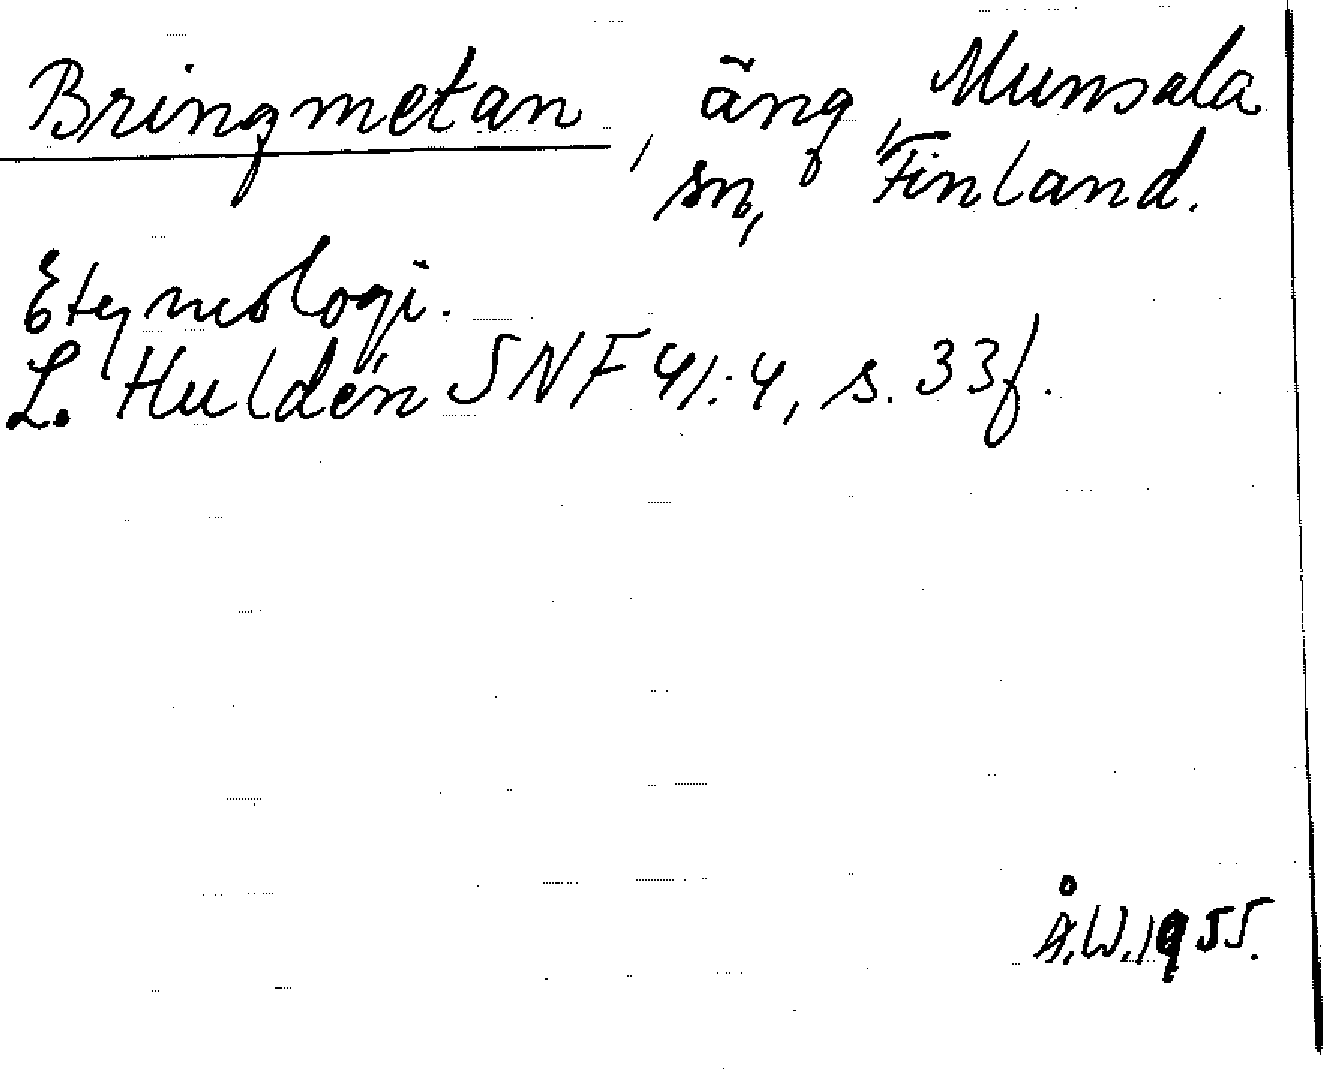 Bringmetan, äng, Munsala
sn, Finland.
Etymologi.
L. Huldén SNF 41:4, s. 33f.
Å.W.1955.